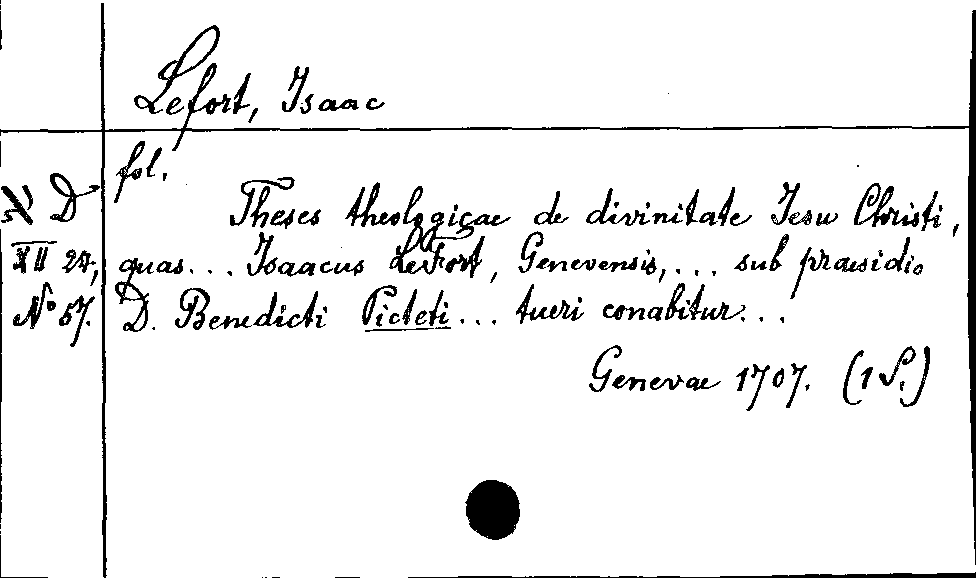 Lefort, Isaac
fol.
D
Theses theologicae de divinitate Jesu Christi,
XII 27,
quas... Isaacus LeFort, Genevensis,... sub praesidio
No 57.
D. Benedicti Picteti... tueri conabitur...
Genevae 1707. (1 S.)